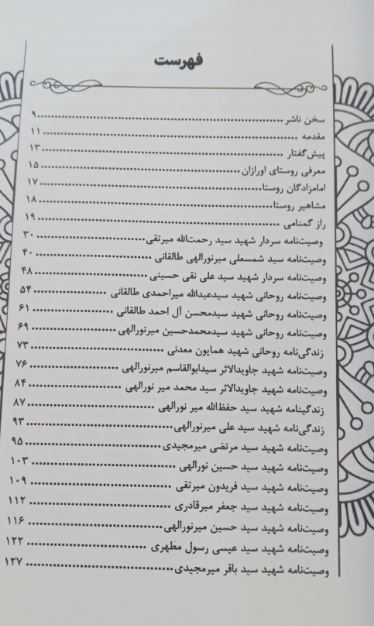 فهرست
سخن ناشر ........ ۹
مقدمه ........ ۱۱
پیش‌گفتار ........ ۱۳
معرفی روستای اورازان ........ ۱۵
امامزادگان روستا ........ ۱۷
مشاهیر روستا ........ ۱۸
راز گمنامی ........ ۱۹
وصیت‌نامه سردار شهید سید رحمت‌الله میرتقی ........ ۳۰
وصیت‌نامه سید شمسعلی میرنورالهی طالقانی ........ ۴۰
وصیت‌نامه سردار شهید سید علی نقی حسینی ........ ۴۸
وصیت‌نامه روحانی شهید سیدعبدالله میراحمدی طالقانی ........ ۵۴
وصیت‌نامه روحانی شهید سیدمحسن آل احمد طالقانی ........ ۶۱
وصیت‌نامه روحانی شهید سیدمحمدحسین میرنورالهی ........ ۶۹
زندگی‌نامه روحانی شهید همایون معدنی ........ ۷۳
وصیت‌نامه شهید جاویدالاثر سیدابوالقاسم میرنورالهی ........ ۷۶
وصیت‌نامه شهید جاویدالاثر سید محمد میر نورالهی ........ ۸۴
زندگینامه شهید سید حفظ‌الله میر نورالهی ........ ۸۷
زندگی‌نامه شهید سید علی میرنورالهی ........ ۹۳
وصیت‌نامه شهید سید مرتضی میرمجیدی ........ ۹۵
وصیت‌نامه شهید سید حسین نورالهی ........ ۱۰۳
وصیت‌نامه شهید سید فریدون میرتقی ........ ۱۰۹
وصیت‌نامه شهید سید جعفر میرقادری ........ ۱۱۲
وصیت‌نامه شهید سید حسین میرنورالهی ........ ۱۱۶
وصیت‌نامه شهید سید عیسی رسول مطهری ........ ۱۲۲
وصیت‌نامه شهید سید باقر میرمجیدی ........ ۱۲۷